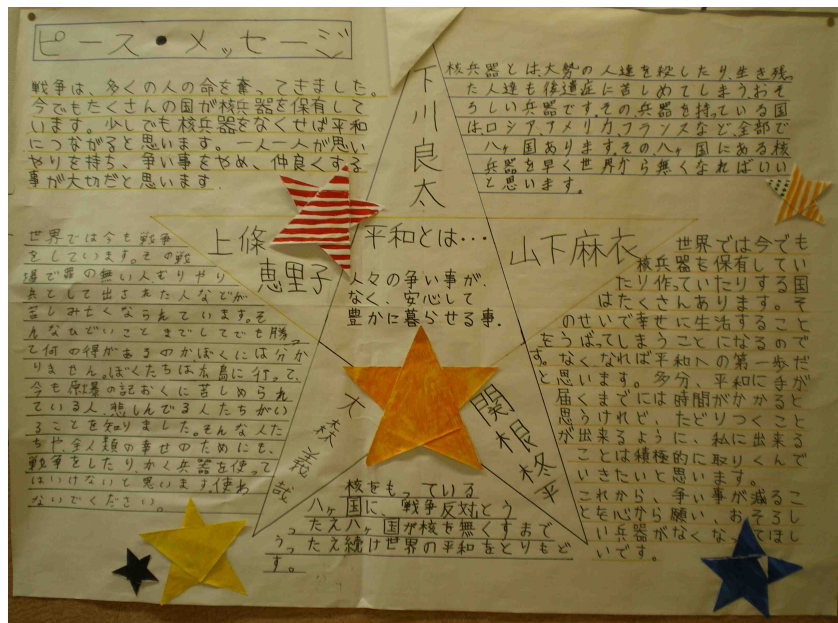 ピース・メッセージ
戦争は、多くの人の命を奪ってきました。
今でもたくさんの国が核兵器を保有して
います。少しでも核兵器をなくせば平和
につながると思います。一人一人が思い
やりを持ち、争い事をやめ、仲良くする
事が大切だと思います
下川良太
核兵器とは、大勢の人達を殺したり、生き残っ
た人達も後遺症に苦しめてしまうおそ
ろしい兵器です。その兵器を持っている国
はロシア、アメリカ、フランスなど、全部で
八ヶ国あります。その八ヶ国にある核
兵器を早く世界から無くなればいい
と思います。
上條
恵里子
平和とは・・・
人々の争い事が、
なく、安心して
豊かに暮らせる事.
山下麻衣
世界では今も戦争
をしています。その戦
場で罪の無い人むりやり
兵として出された人などが
苦しみ亡くなられています。そ
んなひどいことまでしてでも勝っ
て何の得があるのかぼくには分か
りません。ぼくたちは広島に行って、
今も原爆の記おくに苦しめられ
ている人、悲しんでる人たちがい
ることを知りました。そんな人た
ちや、全人類の幸せのためにも、
戦争をしたり、かく兵器を使って
はいけないと思います。使わ
ないでください。
大森義哉
関根柊平
核をもっている
八ヶ国に、戦争反対とう
ったえ八ヶ国が核を無くすまで
うったえ続け世界の平和をとりもど
す。
世界では今でも
核兵器を保有してい
たり作っていたりする国
はたくさんあります。そ
のせいで幸せに生活すること
をうばってしまうことになるので
す。なくなれば平和への第一歩だ
と思います。多分、平和に手が
届くまでには時間がかかると
思うけれど、たどりつくこと
が出来るように、私に出来る
ことは積極的に取りくんで
いきたいと思います。
これから、争い事が減るこ
とを心から願い、おそろし
い兵器がなくなってほし
いです。